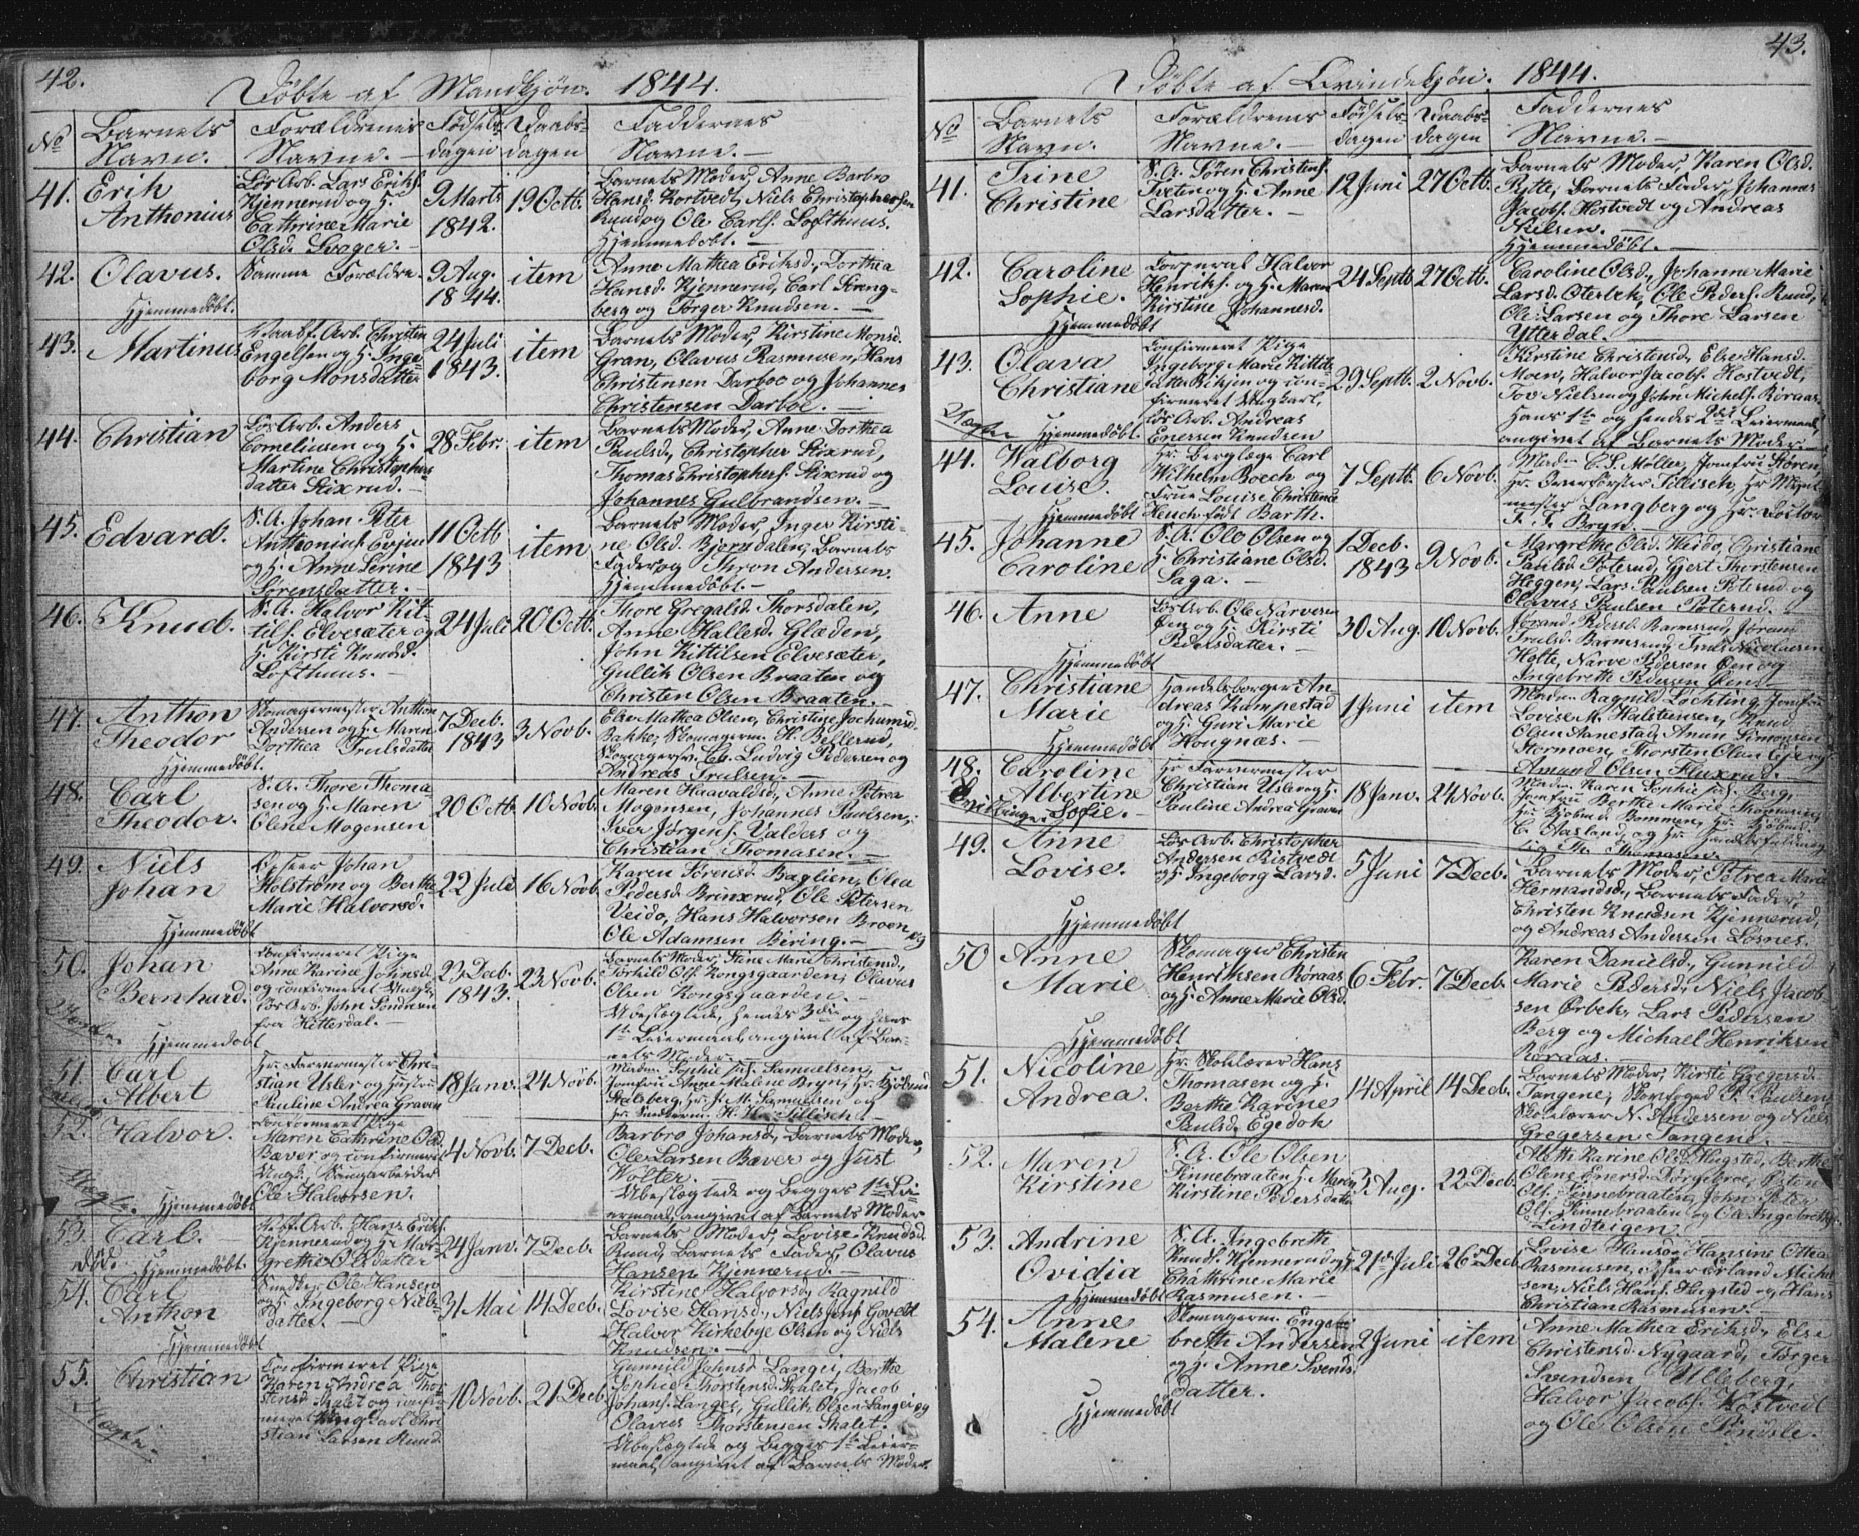 42.
Döbte af Mandkjön. 1844.
No
Barnets Navn.
Forældrenes Navne. —
Födsels- dagen
Daabs- dagen
Faddernes Navne. —
41.
Erik
Anthonius
Lös Arb. Lars Eriks.
Kjennerud og H.
Cathrine Marie
Olsd. Svager. —
9 Marts
1842.
19 Octb.
Barnets Moder, Anne Barbro
Hansd. Kortvedt, Niels Christophersen
Rund og Ole Carls. Lofthuus.
Hjemmedöbt. —
42.
Olavus.
Hjemmedöbt.
Samme Forældre.
9 Aug.
1844.
item
Anne Mathea Eriksd., Dorthea
Hansd. Kjennerud, Carl
berg og Torger Knudsen. —
43.
Martinus
Arb. Christen
Engelsen og H. Inge-
borg Monsdatter
24 Juli
1843.
item
Barnets Moder, Kirstine Monsd.
Gran, Olavus Rasmusen, Hans
Christensen Darboe og Johannes
Christensen Darboe. —
44.
Christian
Lös Arb. Anders
Corneliusen og H.
Martine Christophers
datter Stixrud. —
28 Febr.
item
Barnets Moder, Anne Dorthea
Paulsd., Christopher Stixrud,
Thomas Christophers. Stixrud og
Johannes Gulbrandsen. —
45.
Edvard.
S. A. Johan Peter
Anthonius. Evjen
og H. Anne Serine
Sörensdatter. —
11 Octb
1843
item
Barnets Moder, Inger Kirsti-
ne Olsd. Bjerndalen, Barnets
Fader og Thron Andersen.
Hjemmedöbt. —
46.
Knud.
S. A. Halvor Kit-
tils. Elvesæter og
H. Kirsti Knudsd.
Lofthuus. —
24 Juli
20 Octb.
Thore Gregalsd. Thorsdalen,
Anne Hallesd. Glæden,
John Kittilsen Elvesæter,
Gullik Olsen Braaten og
Christen Olsen Braaten. —
47.
Anthon
Theodor
Hjemmedöbt.
Skomagermester Anthon
Andersen og H. Maren
Dorthea Trulsdatter
7 Decb.
1843
3 Novb.
Else Mathea Olsen, Christine Jochumsd.
Bakke, Skomagerm. H. Bellerud,
Skomagersv. Ludvig Pedersen og
Andreas Trulsen. —
48.
Carl
Theodor.
S. A. Thore Thoma-
sen og H. Maren
Olene Mogensen
20 Octb
10 Novb.
Maren Haavaldsd., Anne Petrea
Mogensen, Johannes Paulsen,
Iver Jörgens. Valders og
Christian Thomasen. —
49.
Niels
Johan
Hjemmedöbt
Johan
Holström og Berthe
Marie Halvorsd.
22 Juli
16 Novb.
Karen Sörensd. Baglien, Olea
Pedersd. Brinxrud, Ole Petersen
Veido, Hans Halvorsen Broen og
Ole Adamsen Biring. —
50.
Johan
Bernhard.
Hjemmedöbt
Confirmeret Pige
Anne Karine Johnsd.
og confirmeret Ungk.
Lös Arb. John
fra Hitterdal. —
23 Decb.
1843.
23 Novb.
Barnets Moder, Stine Marie Christensd.,
Torhild Ols. Kongsgaarden, Olavus
Olsen Kongsgaarden. —
Ubeslægtede, hendes 3die og hans
1ste Leiermaal, angivet af Bar-
nets Moder.
51.
Carl
Albert
Hr. Farvermester Chri-
stian Usler og Hustru
Pauline Andrea Graven
18 Janv.
24 Novb.
Madm. Sophie Samuelsen,
Jomfru Anne Malene Bryn, Hr.
Stalsberg, Hr. J. M. Samuelsen og
Hr. H. H. Tillisch. —
52.
Halvor.
Hjemmedöbt
Confirmeret Pige
Maren Cathrine Olsd.
Bæver og confirmeret
Ungk.
Ole Halvorsen.
4 Novb.
7 Decb.
Barbro Johansd., Barnets Moder,
Ole Larsen Bæver og Just
Wolter. —
Ubeslægtede og begges 1ste Lei-
ermaal, angivet af Barnets Moder
53.
Carl.
död.
Hjemmedöbt.
Arb. Hans Eriks.
Kjennerud og H. Mar-
grethe Olsdatter
24 Janv.
7 Decb.
Barnets Moder, Lovise Knudsd.
Rund, Barnets Fader, Olavus
Hansen Kjennerud. —
54.
Carl
Anthon
Hjemmedöbt
Snedker Ole Hansen
og H. Ingeborg Niels-
datter. —
31 Mai
14 Decb.
Kirstine Halvorsd., Ragnild
Lovise Hansd., Niels Jens.
Halvor Kirkebye Olsen og Niels
Knudsen. —
55.
Christian
Uægte.
Confirmeret Pige
Karen Andrea Thor-
stensd. Skalet og confir-
meret Ungkarl Chri-
stian Larsen Rund
10 Novb.
21 Decb.
Gunnild Johnsd. Langei, Berthe
Sophie Thorstensd. Skalet, Jacob
Johans. Langei, Gullik Olsen Langei og
Olavus Thorstensen Skalet. —
Ubeslægtede og begges 1ste Leier-
maal, angivet af Barnets Moder.
43.
Döbte af Qvindekjön. 1844.
No
Barnets Navn.
Forældrenes Navne. —
Födsels- dagen
Daabs- dagen
Faddernes Navne. —
41.
Trine
Christine
S. A. Sören Christens.
Tveten og H. Anne
Larsdatter. —
12 Juni
27 Octb.
Barnets Moder, Karen Olsd.
Rytte, Barnets Fader, Johannes
Jacobs. Hostvedt og Andreas
Nielsen. —
Hjemmedöbt. —
42.
Caroline
Sophie.
Hjemmedöbt
Corporal Halvor
Henriks. og H. Maren
Kirstine Johannesd.
24 Septb.
27 Octb.
Caroline Olsd., Johanne Marie
Larsd. Oterbek, Ole Peders. Rund,
Ole Larsen og Thore Larsen
Ytterdal. —
43.
Olava
Christiane
Uægte
Hjemmedöbt
Confirmeret Pige
Ingeborg Marie Kittils-
datter og con-
firmeret Ungkarl,
Lös Arb. Andreas
Enersen Knudsen
29 Septb.
2 Novb.
Kirstine Christensd., Else Hansd.
Moen, Halvor Jacobs. Hostvedt,
Tov Nielsen og John Michels. Röraas.
Hans 1ste og hendes 2det Leiermaal,
angivet af Barnets Moder
44.
Walborg
Louise.
Hjemmedöbt
Hr. Berglæge Carl
Wilhelm Boeck og
Frue Louise Christence
Heuch född Barth.
7 Septb.
6 Novb.
Madm. C. S. Möller, Jomfru Stören,
Hr. Overförster Tillisch, Hr. Mynt-
mester Langberg og Hr. Doctor
Bryn. —
45.
Johanne
Caroline
S. A. Ole Olsen og
H. Christiane Olsd.
Saga. —
1 Decb.
1843
9 Novb.
Margrethe Olsd. Weido, Christiane
Poterud, Gjert Thorstensen
Heggen, Lars Paulsen Poterud og
Olavus Paulsen Poterud. —
46.
Anne
Hjemmedöbt
Lös Arb. Ole Narvesen
Öen og H. Kirsti
Pedersdatter. —
30 Aug.
10 Novb.
Jörand Pedersd. Barmsrud, Jöran
Trulsd. Barmsrud, Truls Nicolaisen
Holte, Narve Pedersen Öen og
Ingebreth Pedersen Öen.
47.
Christiane
Marie
Hjemmedöbt
Handelsborger An-
dreas Kumpestad
og H. Guri Marie
Hougnæs. —
1 Juni
item
Madm. Ragnild Lochting, Jomfru
Lovise M. Halstensen, Knud
Olsen Aanestad, Anun Simonsen
Stormoen, Thorsten Olsen Eje og
Amund Olsen Fluxrud. —
48.
Caroline
Albertine
Sofie. —
Hr. Farvermester
Christian Usler og H.
Pauline Andrea Graven
18 Janv.
24 Novb.
Madm. Karen Sophie Berg,
Jomfru Berthe Marie Thomasen,
Hr. Kjöbmd. Bommen, Hr. Kjöbmd.
C. Aasland, og Hr.
Th. Thomasen. —
49.
Anne
Lovise.
Hjemmedöbt
Lös Arb. Christopher
Andersen Ristvedt
og H. Ingeborg Larsd.
5 Juni
7 Decb.
Barnets Moder, Petrea Marie
Hermandsd., Barnets Fader,
Christen Knudsen Kjennerud,
og Andreas Andersen Losnes.
50
Anne
Marie
Hjemmedöbt
Skomager Christen
Henriksen Röraas
og H. Anne Marie Olsd.
6 Febr.
7 Decb.
Karen Danielsd., Gunnild
Marie Pedersd., Niels Jacob-
sen Örbek, Lars Pedersen
Berg og Michael Henriksen
Röraas. —
51.
Nicoline
Andrea.
Hr. Skolelærer Hans
Thomasen og H.
Berthe Karine
Paulsd. Egedok
14 April
14 Decb.
Barnets Moder, Kirsti Gregersd.
Tangene, Skovfoged P. Paulsen,
Skolelærer N. Andersen og Niels
Gregersen Tangene. —
52.
Maren
Kirstine
S. A. Ole Olsen
Finnebraaten H. Maren
Kirstine Pedersdatter
3 Aug.
22 Decb.
Aleth Karine Olsd. Hegsted, Berthe
Olene Enersd. Dörgebroe, Östen
Ols. Finnebraaten, John Peter
Ols. Finnebraaten og Ole Ingebrets.
Lindteigen
53.
Andrine
Ovidia
Hjemmedöbt
S. A. Ingebreth
Knuds. Kjennerud og H.
Chathrine Marie
Rasmusen. —
21de Juli
26de Decb.
Lovise Hansd., Hansine Othea
Rasmusen, Erland Miche-
sen, Niels Hans. Hegsted og Hans
Christian Rasmusen. —
54.
Anne
Malene
Hjemmedöbt
Skomagerm. Enge-
breth Andersen
og H. Anne Svends-
datter.
2 Juni
item
Anne Mathea Eriksd., Else
Christensd. Nygaard, Torger
Svendsen Ulleberg,
Halvor Jacobs. Hostvedt
og Ole Olsen Pindsle.